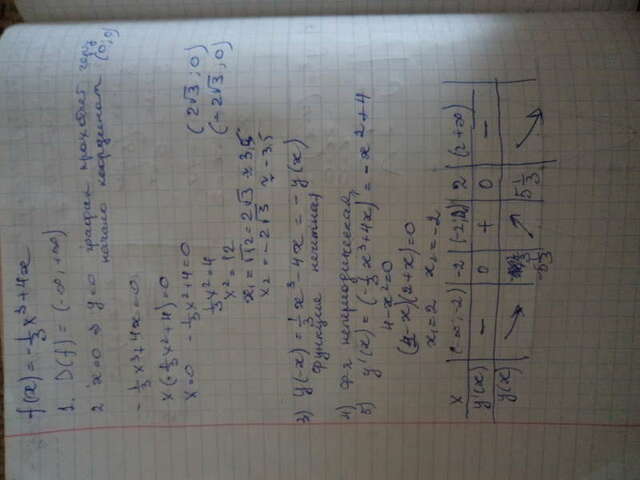 f(x) = -1/3 x³ + 4x
1. D(f) = (-∞; +∞)
2 x=0 ⇒ y=0 график проходит через
начало координат (0; 0)
-1/3 x³ + 4x = 0
x(-1/3 x² + 4) = 0
x=0 -1/3 x² + 4 = 0
1/3 x² = 4
x² = 12
x₁ = √12 = 2√3 ≈ 3,5 (2√3; 0)
x₂ = -2√3 ≈ -3,5 (-2√3; 0)
3) y(-x) = 1/3 x³ - 4x = -y(x)
функция нечетная
4) ф-я непериодическая
5) y'(x) = (-1/3 x³ + 4x)' = -x² + 4
4 - x² = 0
(2-x)(2+x) = 0
x₁ = 2 x₂ = -2
x (-∞; -2) -2 (-2; 2) 2 (2 +∞)
y'(x) - 0 + 0 -
y(x) ↘ -5 1/3 ↗ 5 1/3 ↘